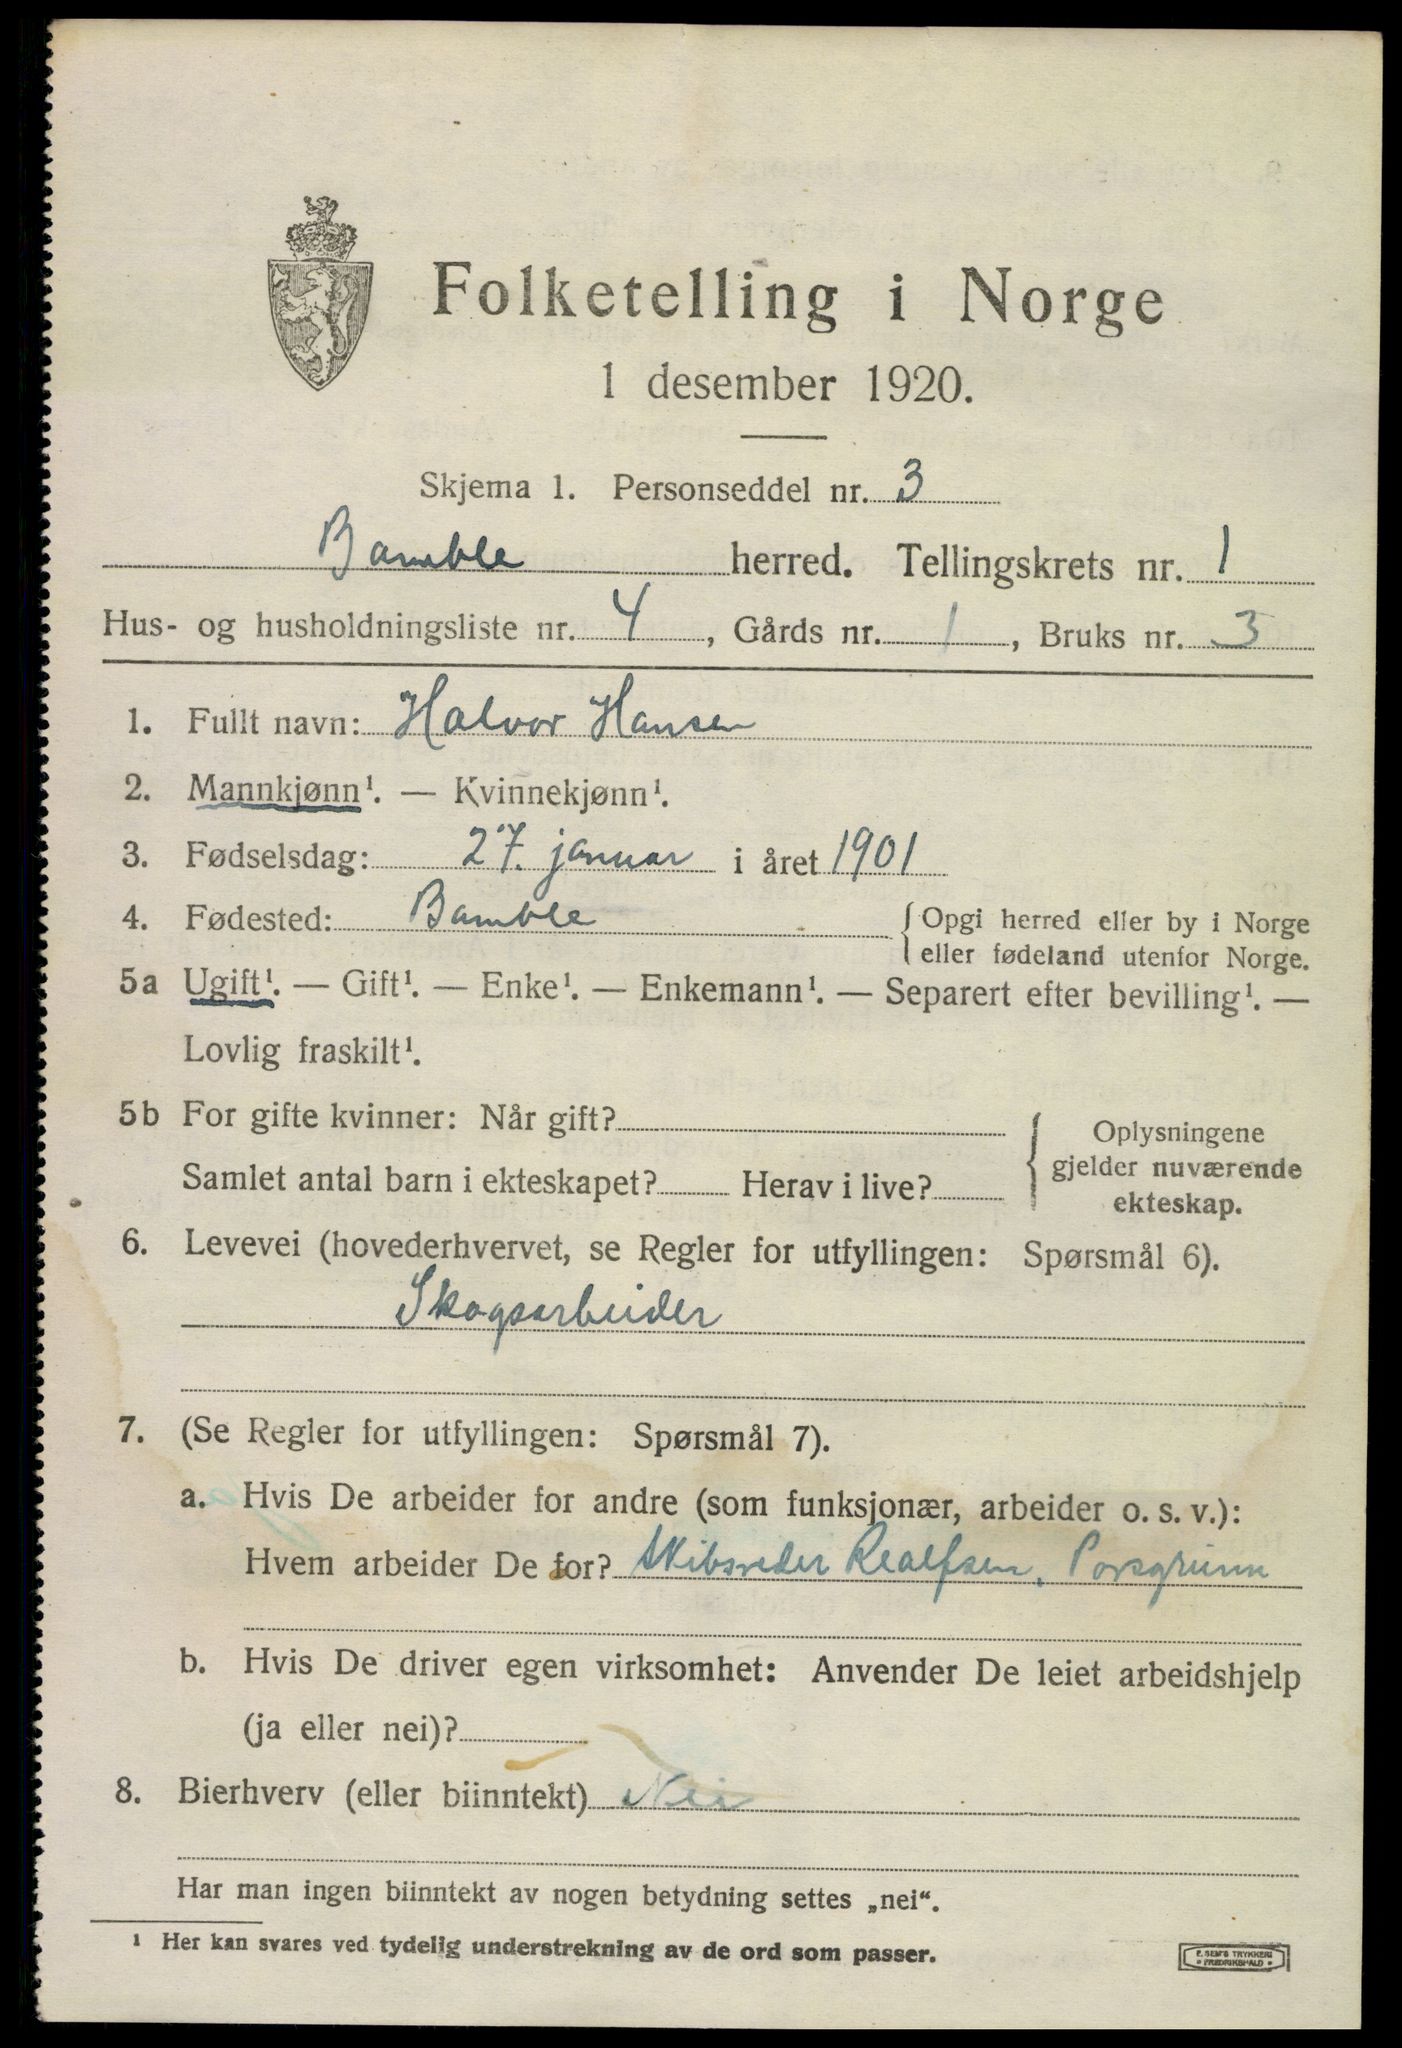 Folketelling i Norge
1 desember 1920.
Skjema 1. Personseddel nr. 3
Bamble herred. Tellingskrets nr. 1
Hus- og husholdningsliste nr. 4, Gårds nr. 1, Bruks nr. 3
1. Fullt navn: Halvor Hansen
2. Mannkjønn¹. — Kvinnekjønn¹.
3. Fødselsdag: 27. januar i året 1901
4. Fødested: Bamble { Opgi herred eller by i Norge
eller fødeland utenfor Norge.
5a Ugift¹. — Gift¹. — Enke¹. — Enkemann¹. — Separert efter bevilling¹. —
Lovlig fraskilt¹.
5b For gifte kvinner: Når gift?
Samlet antal barn i ekteskapet? Herav i live?
Oplysningene
gjelder nuværende
ekteskap.
6. Levevei (hovederhvervet, se Regler for utfyllingen: Spørsmål 6).
Skogsarbeider
7. (Se Regler for utfyllingen: Spørsmål 7).
a. Hvis De arbeider for andre (som funksjonær, arbeider o. s. v.):
Hvem arbeider De for? Skibsreder Realfsen, Porsgrunn
b. Hvis De driver egen virksomhet: Anvender De leiet arbeidshjelp
(ja eller nei)?
8. Bierhverv (eller biinntekt) Nei
Har man ingen biinntekt av nogen betydning settes „nei“.
¹ Her kan svares ved tydelig understrekning av de ord som passer.
E. SEM'S TRYKKERI
• FREDRIKSHALD •